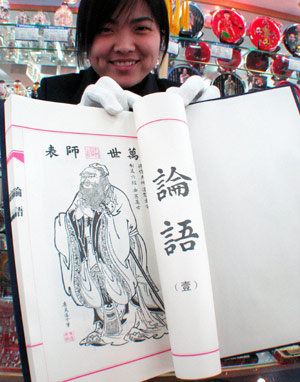 萬世師表
論語
（壹）
論語